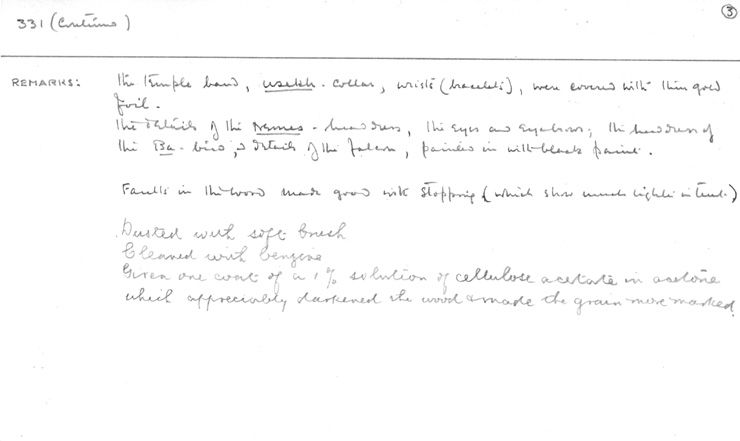 3
331 (Continue)
REMARKS:
the temple band, usekh-collar, wrists (bracelets), were covered with thin gold
foil.
The details of the Nemes-headdress, the eyes and eyebrows; the headdress of
the Ba-bird, & details of the falcon, painted in with black paint.
Faults in the wood made good with stopping (which show much lighter in tint.)
Dusted with soft brush
Cleaned with benzine
Given one coat of a 1% solution of cellulose acetate in acetone
which appreciably darkened the wood & made the grain more marked.